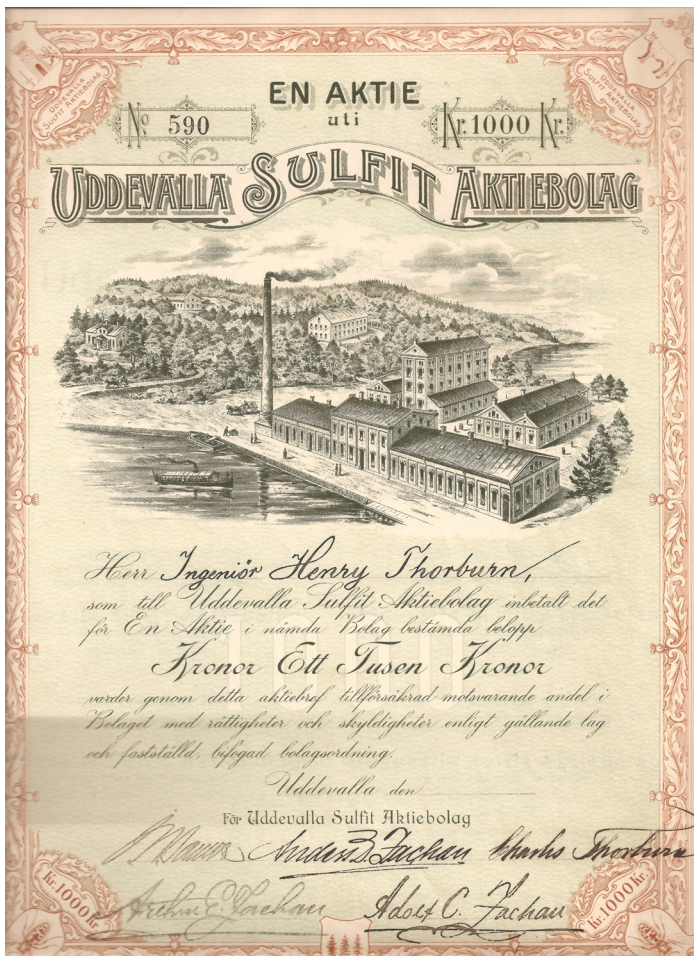 UDDEVALLA
SULFIT AKTIEBOLAG
UDDEVALLA
SULFIT AKTIEBOLAG
EN AKTIE
uti
No 590
Kr. 1000 Kr.
UDDEVALLA SULFIT AKTIEBOLAG
Herr Ingeniör Henry Thorburn,
som till Uddevalla Sulfit Aktiebolag inbetalt det
för En Aktie i nämda Bolag bestämda belopp
Kronor Ett Tusen Kronor
varder genom detta aktiebref tillförsäkrad motsvarande andel i
Bolaget med rättigheter och skyldigheter enligt gällande lag
och fastställd, bifogad bolagsordning.
Uddevalla den
För Uddevalla Sulfit Aktiebolag
Anders D. Zachau Charles Thorburn
E. Zachau Adolf C. Zachau
Kr. 1000 Kr.
Kr. 1000 Kr.